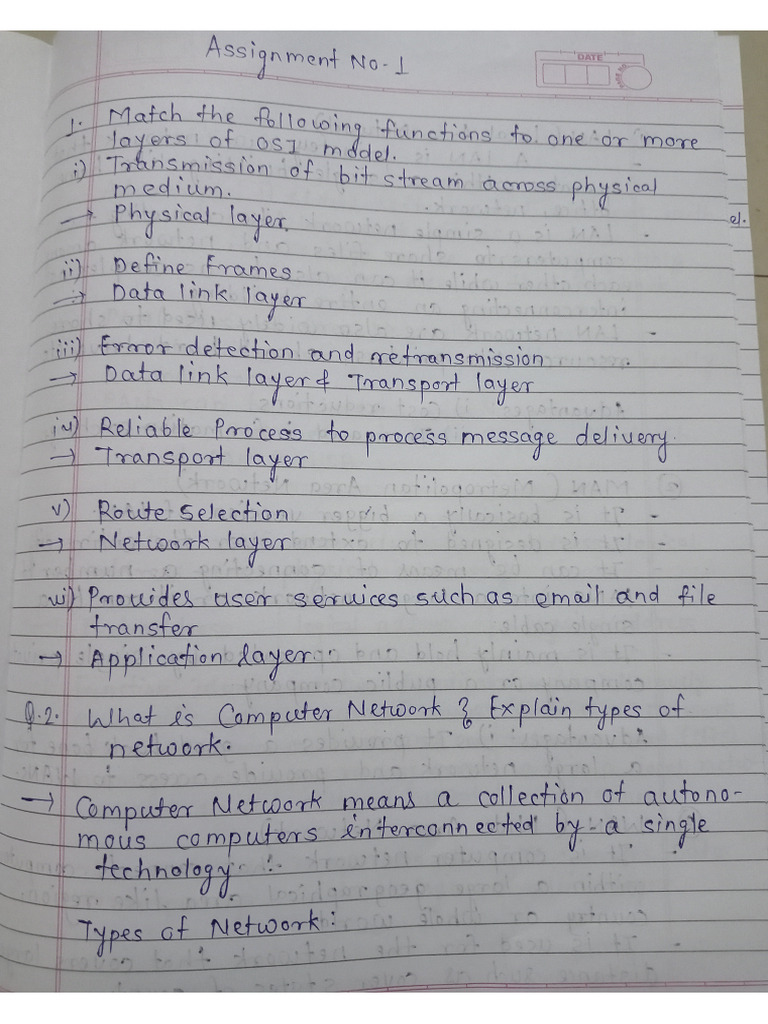 Assignment No-1
DATE
1. Match the following functions to one or more
layers of OSI model.
i) Transmission of bit stream across physical
medium.
→ Physical layer.
ii) Define Frames
→ Data link layer
iii) Error detection and retransmission
→ Data link layer & Transport layer
iv) Reliable Process to process message delivery.
→ Transport layer
v) Route selection
→ Network layer
vi) Provides user services such as email and file
transfer
→ Application layer.
Q.2. What is Computer Network? Explain types of
network.
→ Computer Network means a collection of autono-
mous computers interconnected by a single
technology.
Types of Network: